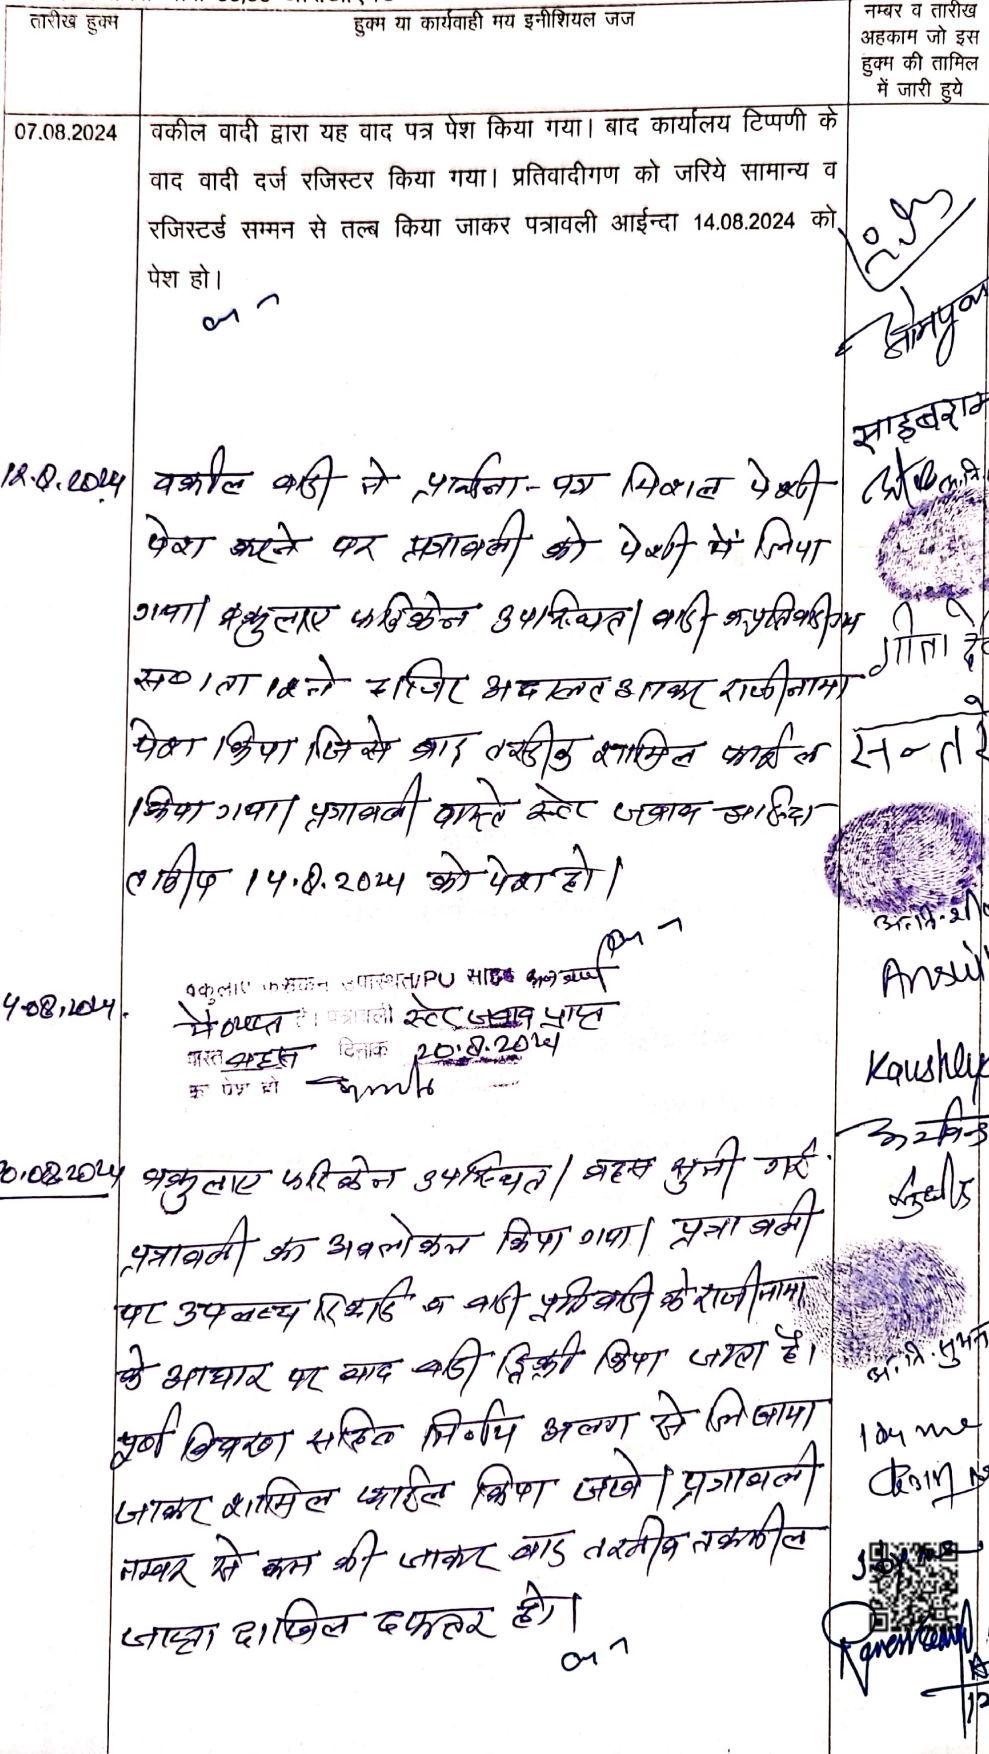 तारीख हुक्म
हुक्म या कार्यवाही मय इनीशियल जज
नम्बर व तारीख
अहकाम जो इस
हुक्म की तामिल
में जारी हुये
07.08.2024
वकील वादी द्वारा यह वाद पत्र पेश किया गया। बाद कार्यालय टिप्पणी के
वाद वादी दर्ज रजिस्टर किया गया। प्रतिवादीगण को जरिये सामान्य व
रजिस्टर्ड सम्मन से तल्ब किया जाकर पत्रावली आईन्दा 14.08.2024 को
पेश हो।
साहबराम
12.8.2024
वकील वादी ने प्रार्थना-पत्र मिशल पेशी
पेश करने पर पत्रावली को पेशी में लिया
गया। वकुलाए फरिकेन उपस्थित। वादी व प्रतिवादीगण
स० 1 ता 12 ने हाजिर अदालत आकर राजीनामा
पेश किया जिसे बाद तस्दीक शामिल फाईल
किया गया। पत्रावली वास्ते स्टेट जवाब आईन्दा
तारीख 14.8.2024 को पेश हो।
गीता दे
सन्तरे
4.08.2024.
वकुलाए फरिकेन उपस्थित/PU
में व्यस्त है। पत्रावली स्टेट जवाब प्राप्त
वास्ते बहस दिनांक 20.8.2024
को पेश हो
Kaushly
20.08.2024
वकुलाए फरिकेन उपस्थित। बहस सुनी गई.
पत्रावली का अवलोकन किया गया। पत्रावली
पर उपलब्ध रिकार्ड व वादी प्रतिवादी के राजीनामा
के आधार पर वाद वादी डिक्री किया जाता है।
पूर्ण विवरण सहित निर्णय अलग से लिखाया
जाकर शामिल फाईल किया जावे। पत्रावली
नम्बर से कम की जाकर बाद तरमीम तकमील
जाप्ता दाखिल दफ्तर हो।